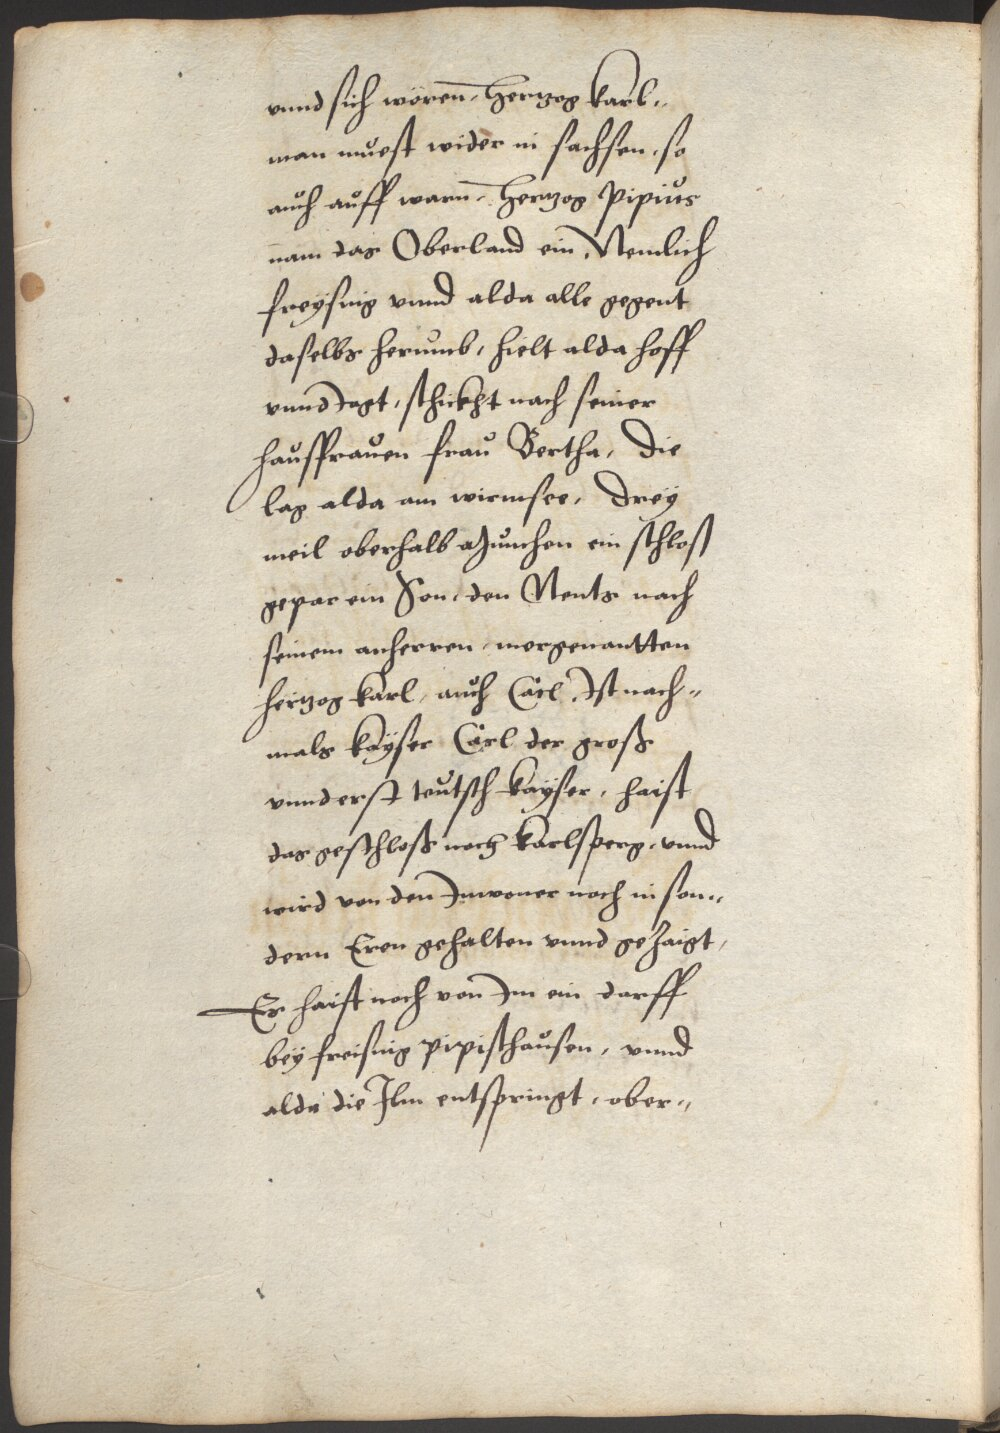 vnnd sich wören, Hertzog Karl„
man muest wider in sachsen, so
auch auff warn, Hertzog Pipius
nam das Oberland ein, Nemlich
freysing vnnd alda alle gegent
daselbs herumb, hielt alda hoff
vnnd Jagt, schickht nach seiner
hausfrauen frau Bertha, Die
lag alda am wirmsee, Drey
meil oberhalb München ein schloss
gepar ein Son, den Nents nach
seinem anherren, mergenantten
hertzog Karl, auch Carl, Ist nach„
mals kayser Carl der gross
vnnd erst teutsch kayser, haist
das geschloss noch Karlsperg, vnnd
wird von den Inwoner noch in son„
dern Eren gehalten vnnd gezaigt,
Er haist noch von Im ein dorff
bey freising pipisthausen, vnnd
alda die Ilm entspringt, ober„